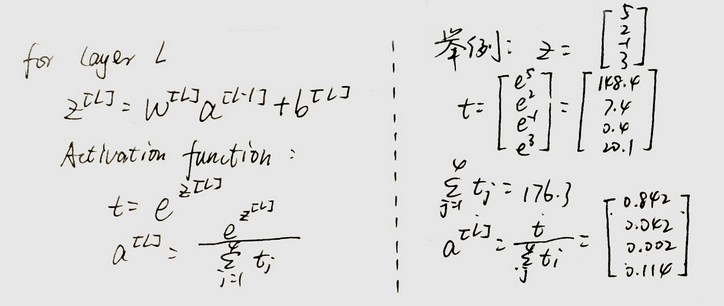 for layer L
z^[L] = W^[L] a^[L-1] + b^[L]
Activation function :
t = e^z^[L]
a^[L] = e^z^[L] / ∑_{j=1}^{4} t_j
举例: z = [5 2 -1 3]
t = [e^5 e^2 e^-1 e^3] = [148.4 7.4 0.4 20.1]
∑_{j=1}^{4} t_j = 176.3
a^[L] = t / ∑_{j}^{4} t_i = [0.842 0.042 0.002 0.114]